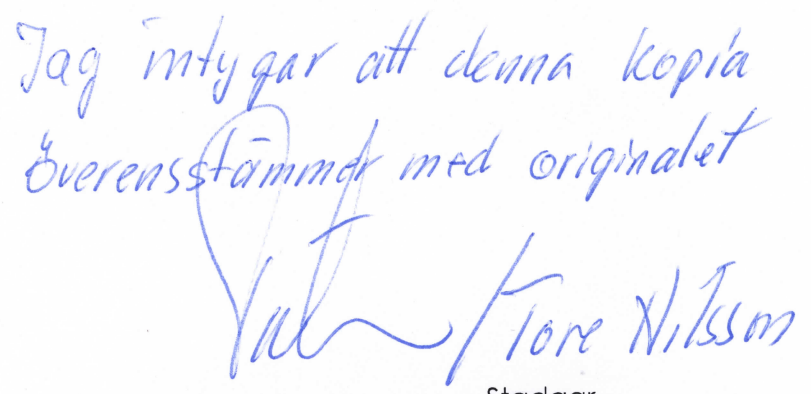 Jag intygar att denna kopia
överensstämmer med originalet
/Tore Nilsson
Stadgar